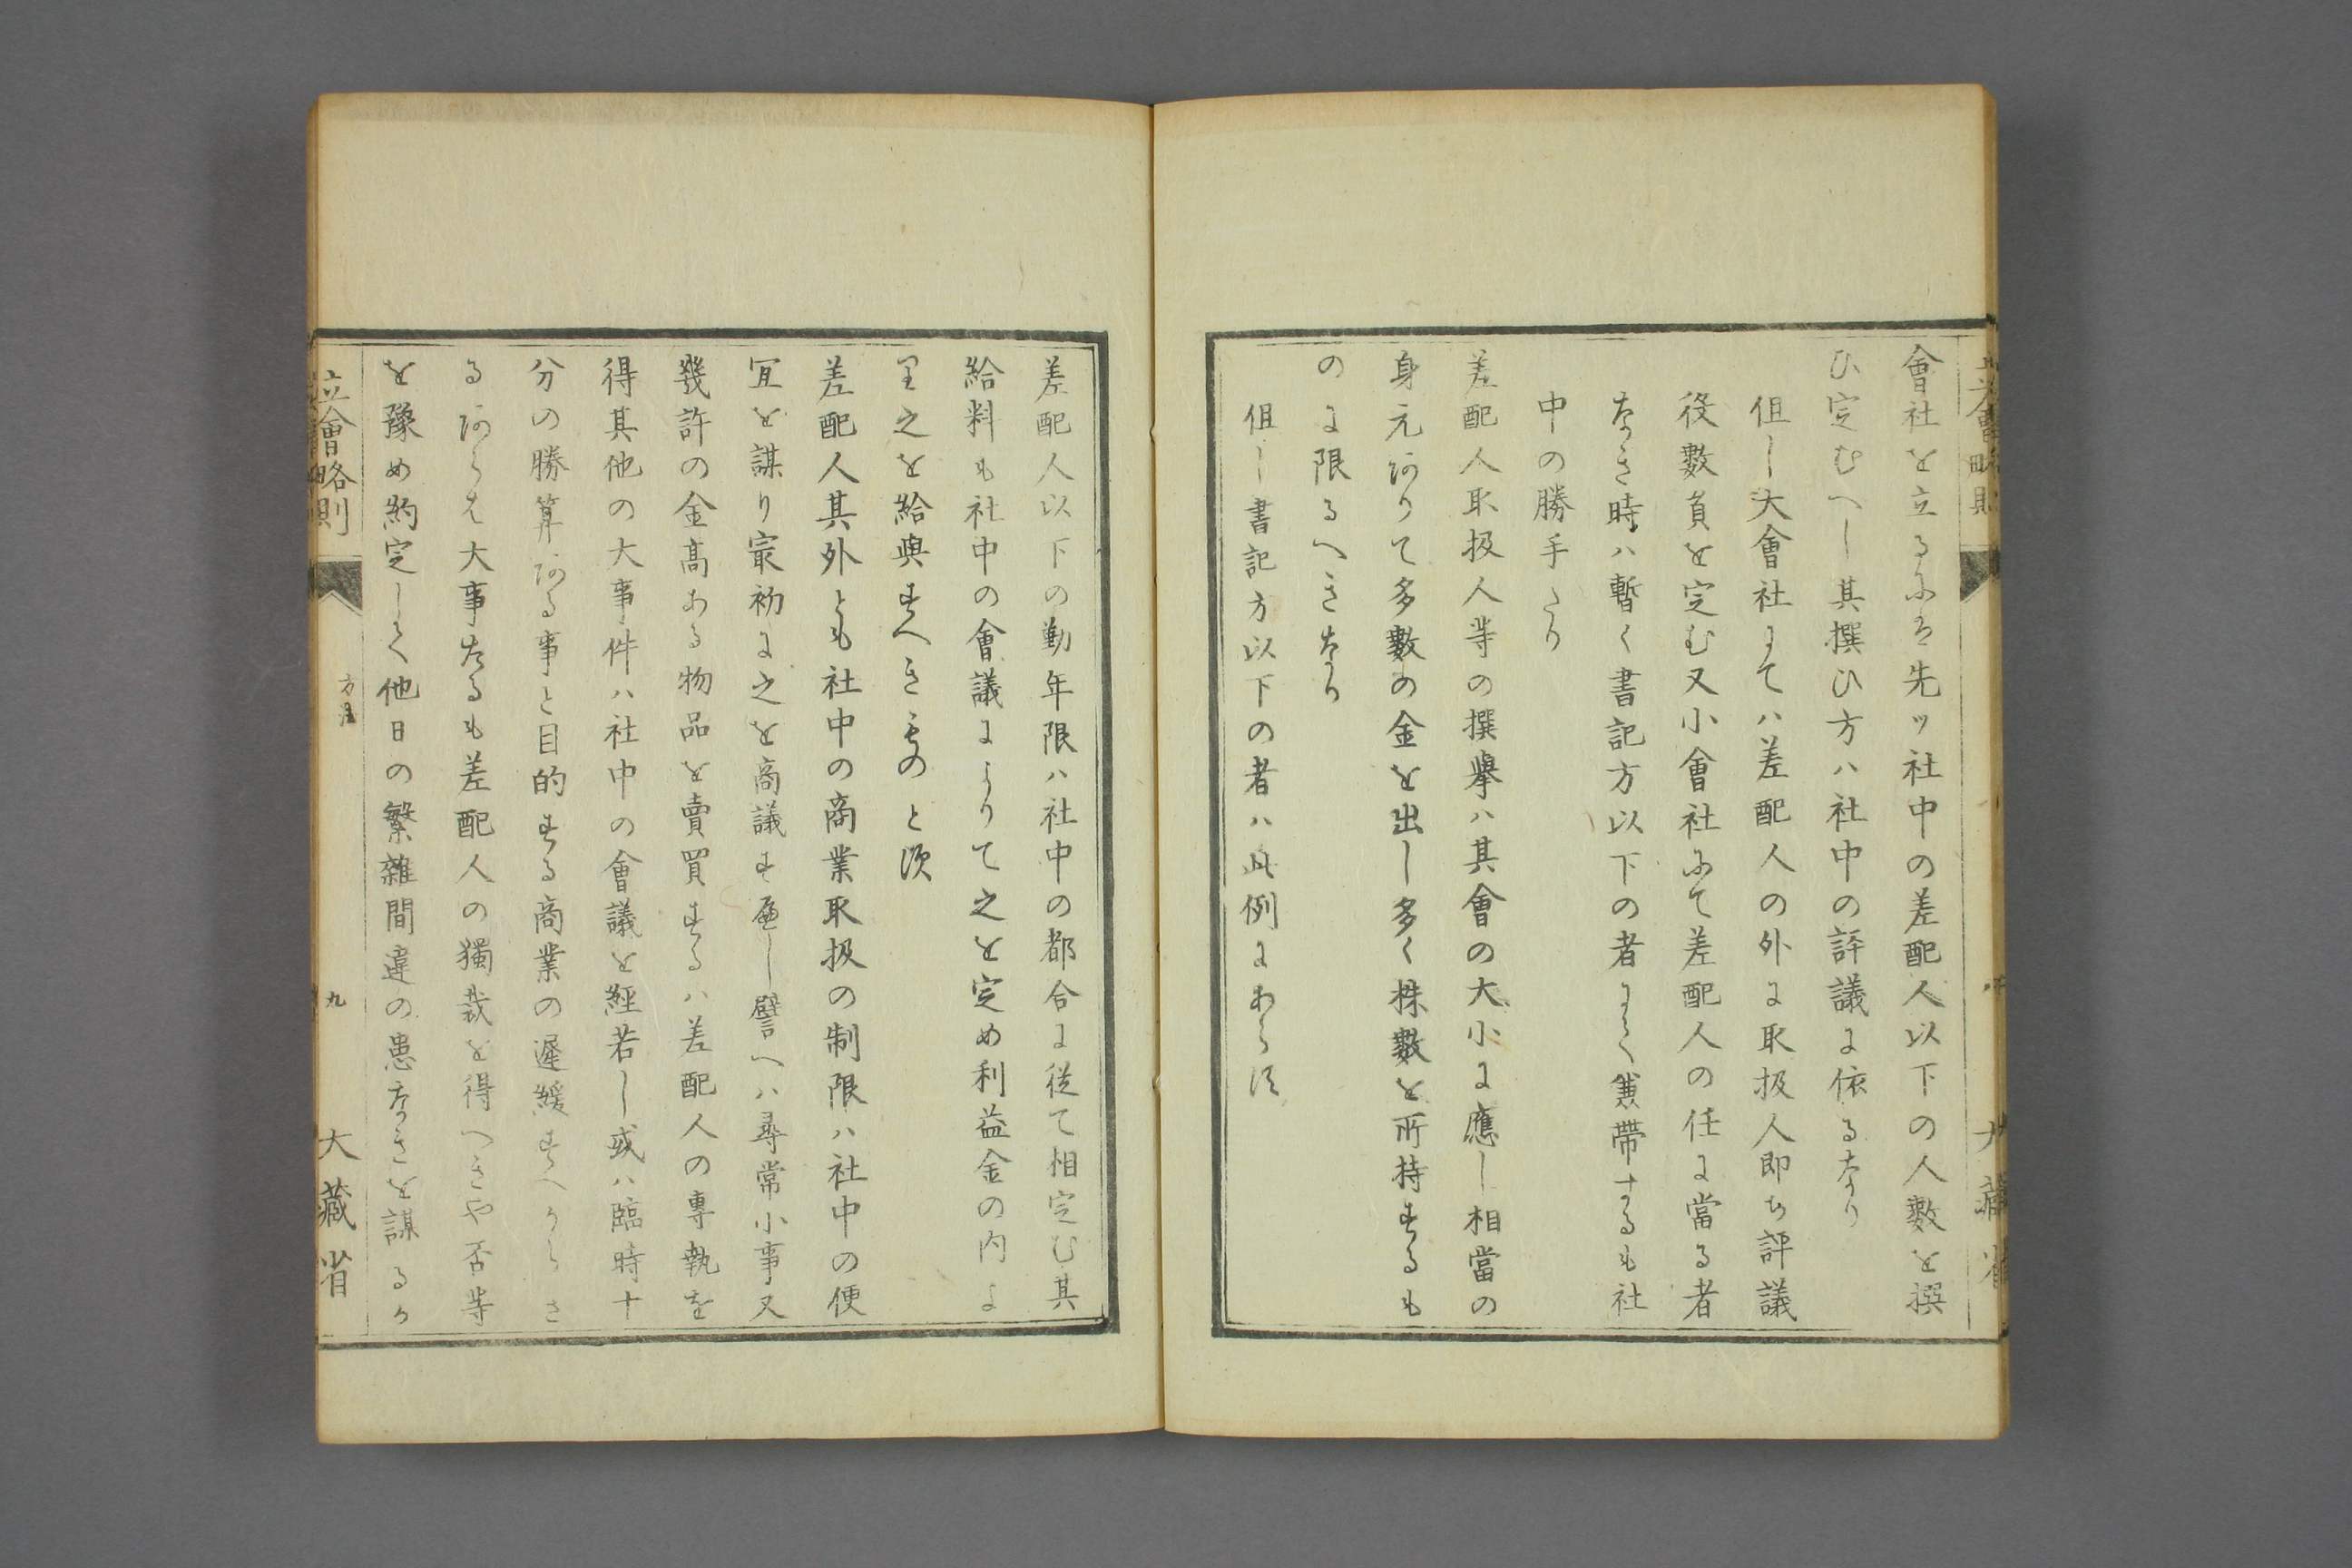 會社を立るには先ッ社中の差配人以下の人數を撰
ひ定むへし其撰ひ方ハ社中の評議に依るなり
但し大會社にてハ差配人の外に取扱人即ち評議
役數員を定む又小會社にて差配人の任に當る者
なき時ハ暫く書記方以下の者にて兼帶するも社
中の勝手たり
差配人取扱人等の撰擧ハ其會の大小に應し相當の
身元ありて多數の金を出し多く株數を所持するも
のに限るへきなり
但し書記方以下の者ハ此例にあらす
差配人以下の勤年限ハ社中の都合に從て相定む其
給料も社中の會議によりて之を定め利益金の内よ
り之を給與すへきものとす
差配人其外とも社中の商業取扱の制限ハ社中の便
宜を謀り最初に之を商議すへし譬へハ尋常小事又
幾許の金高ある物品を賣買するハ差配人の專執を
得其他の大事件ハ社中の會議を經若し或ハ臨時十
分の勝算ある事と目的する商業の遲緩すへからさ
るあらは大事たるも差配人の獨裁を得へきや否等
を豫め約定して他日の繁雜間違の患なきを謀るか
立會略則
方法
九
大藏省